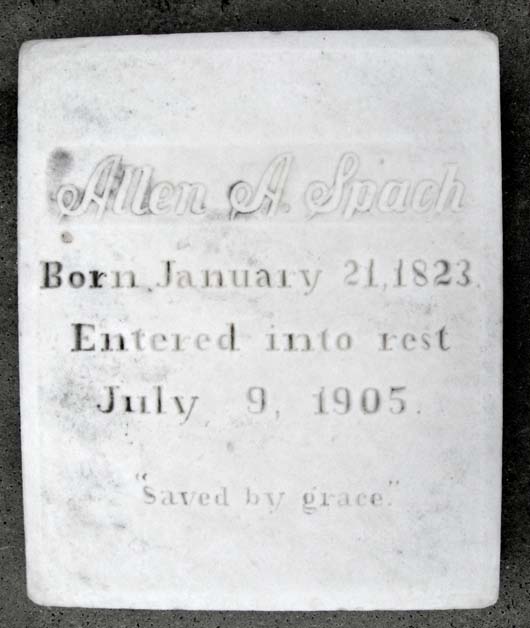 Allen A. Spach
Born January 21, 1823.
Entered into rest
July 9, 1905.
"Saved by grace."